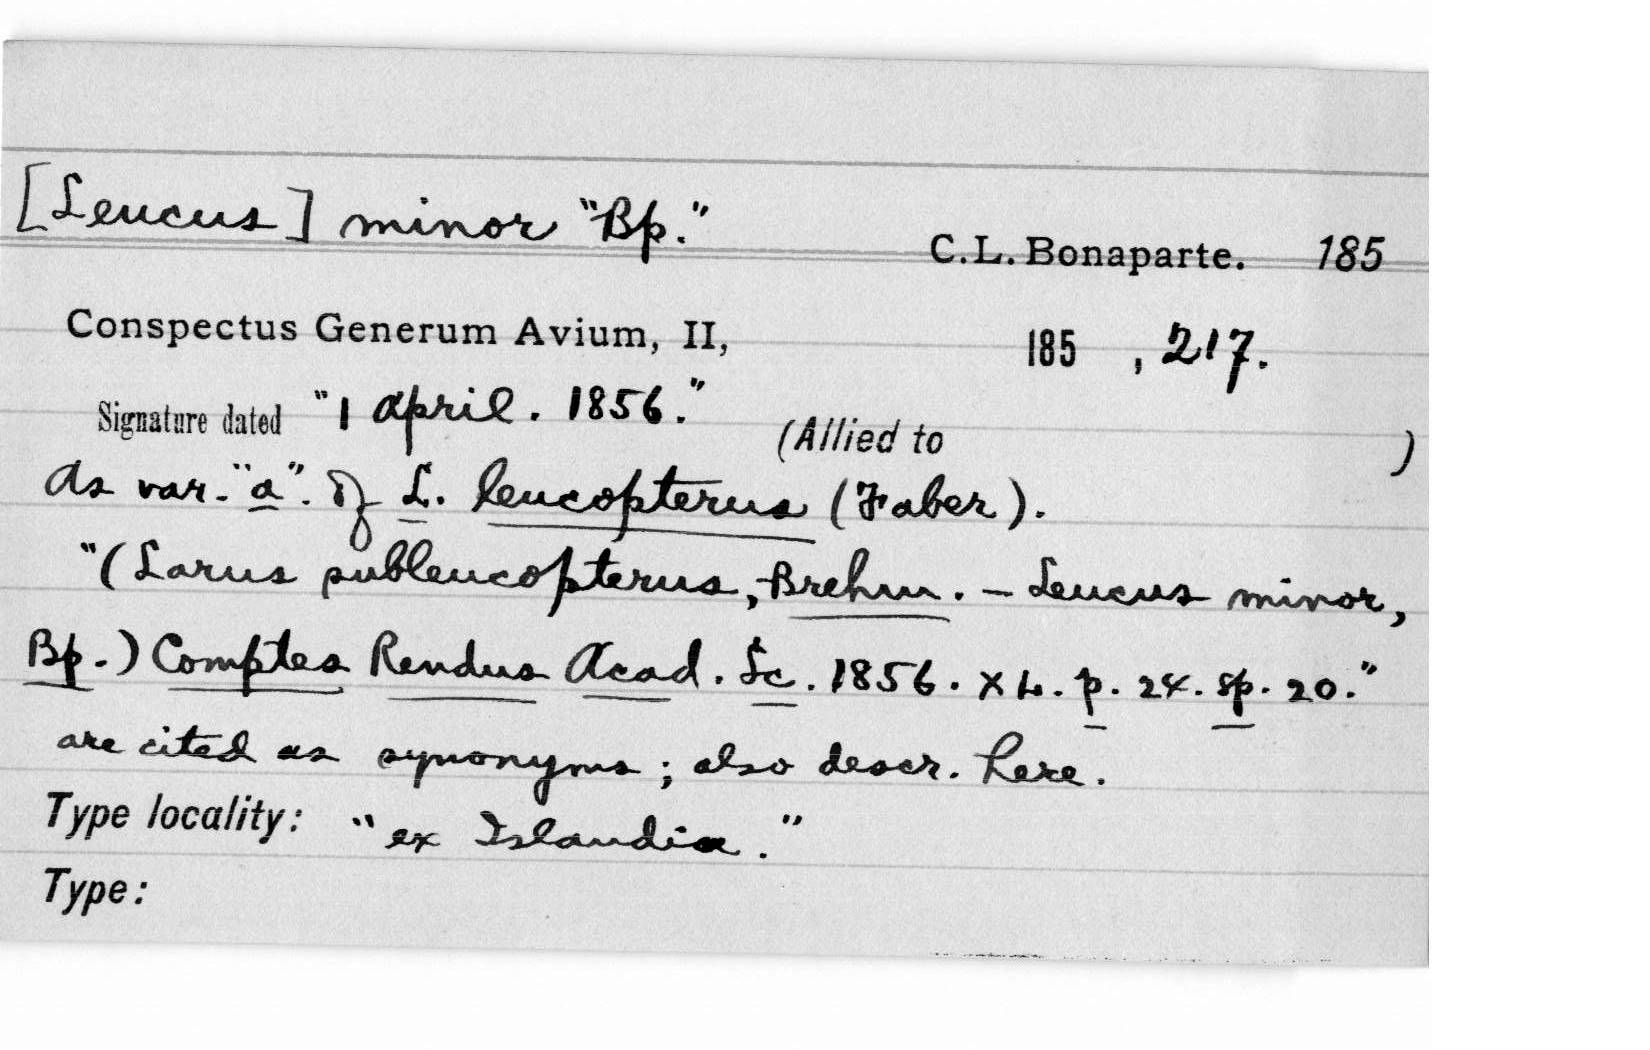 [Leucus] minor "Bp."
C.L. Bonaparte. 185
Conspectus Generum Avium, II, 185 , 217.
Signature dated "1 April. 1856."
(Allied to )
As var. "a". of L. leucopterus (Faber).
"(Larus subleucopterus, Brehm. – Leucus minor,
Bp.) Comptes Rendus Acad. Sc. 1856. XL. p. 24. sp. 20."
are cited as synonyms; also descr. here.
Type locality: "ex Islandia."
Type: